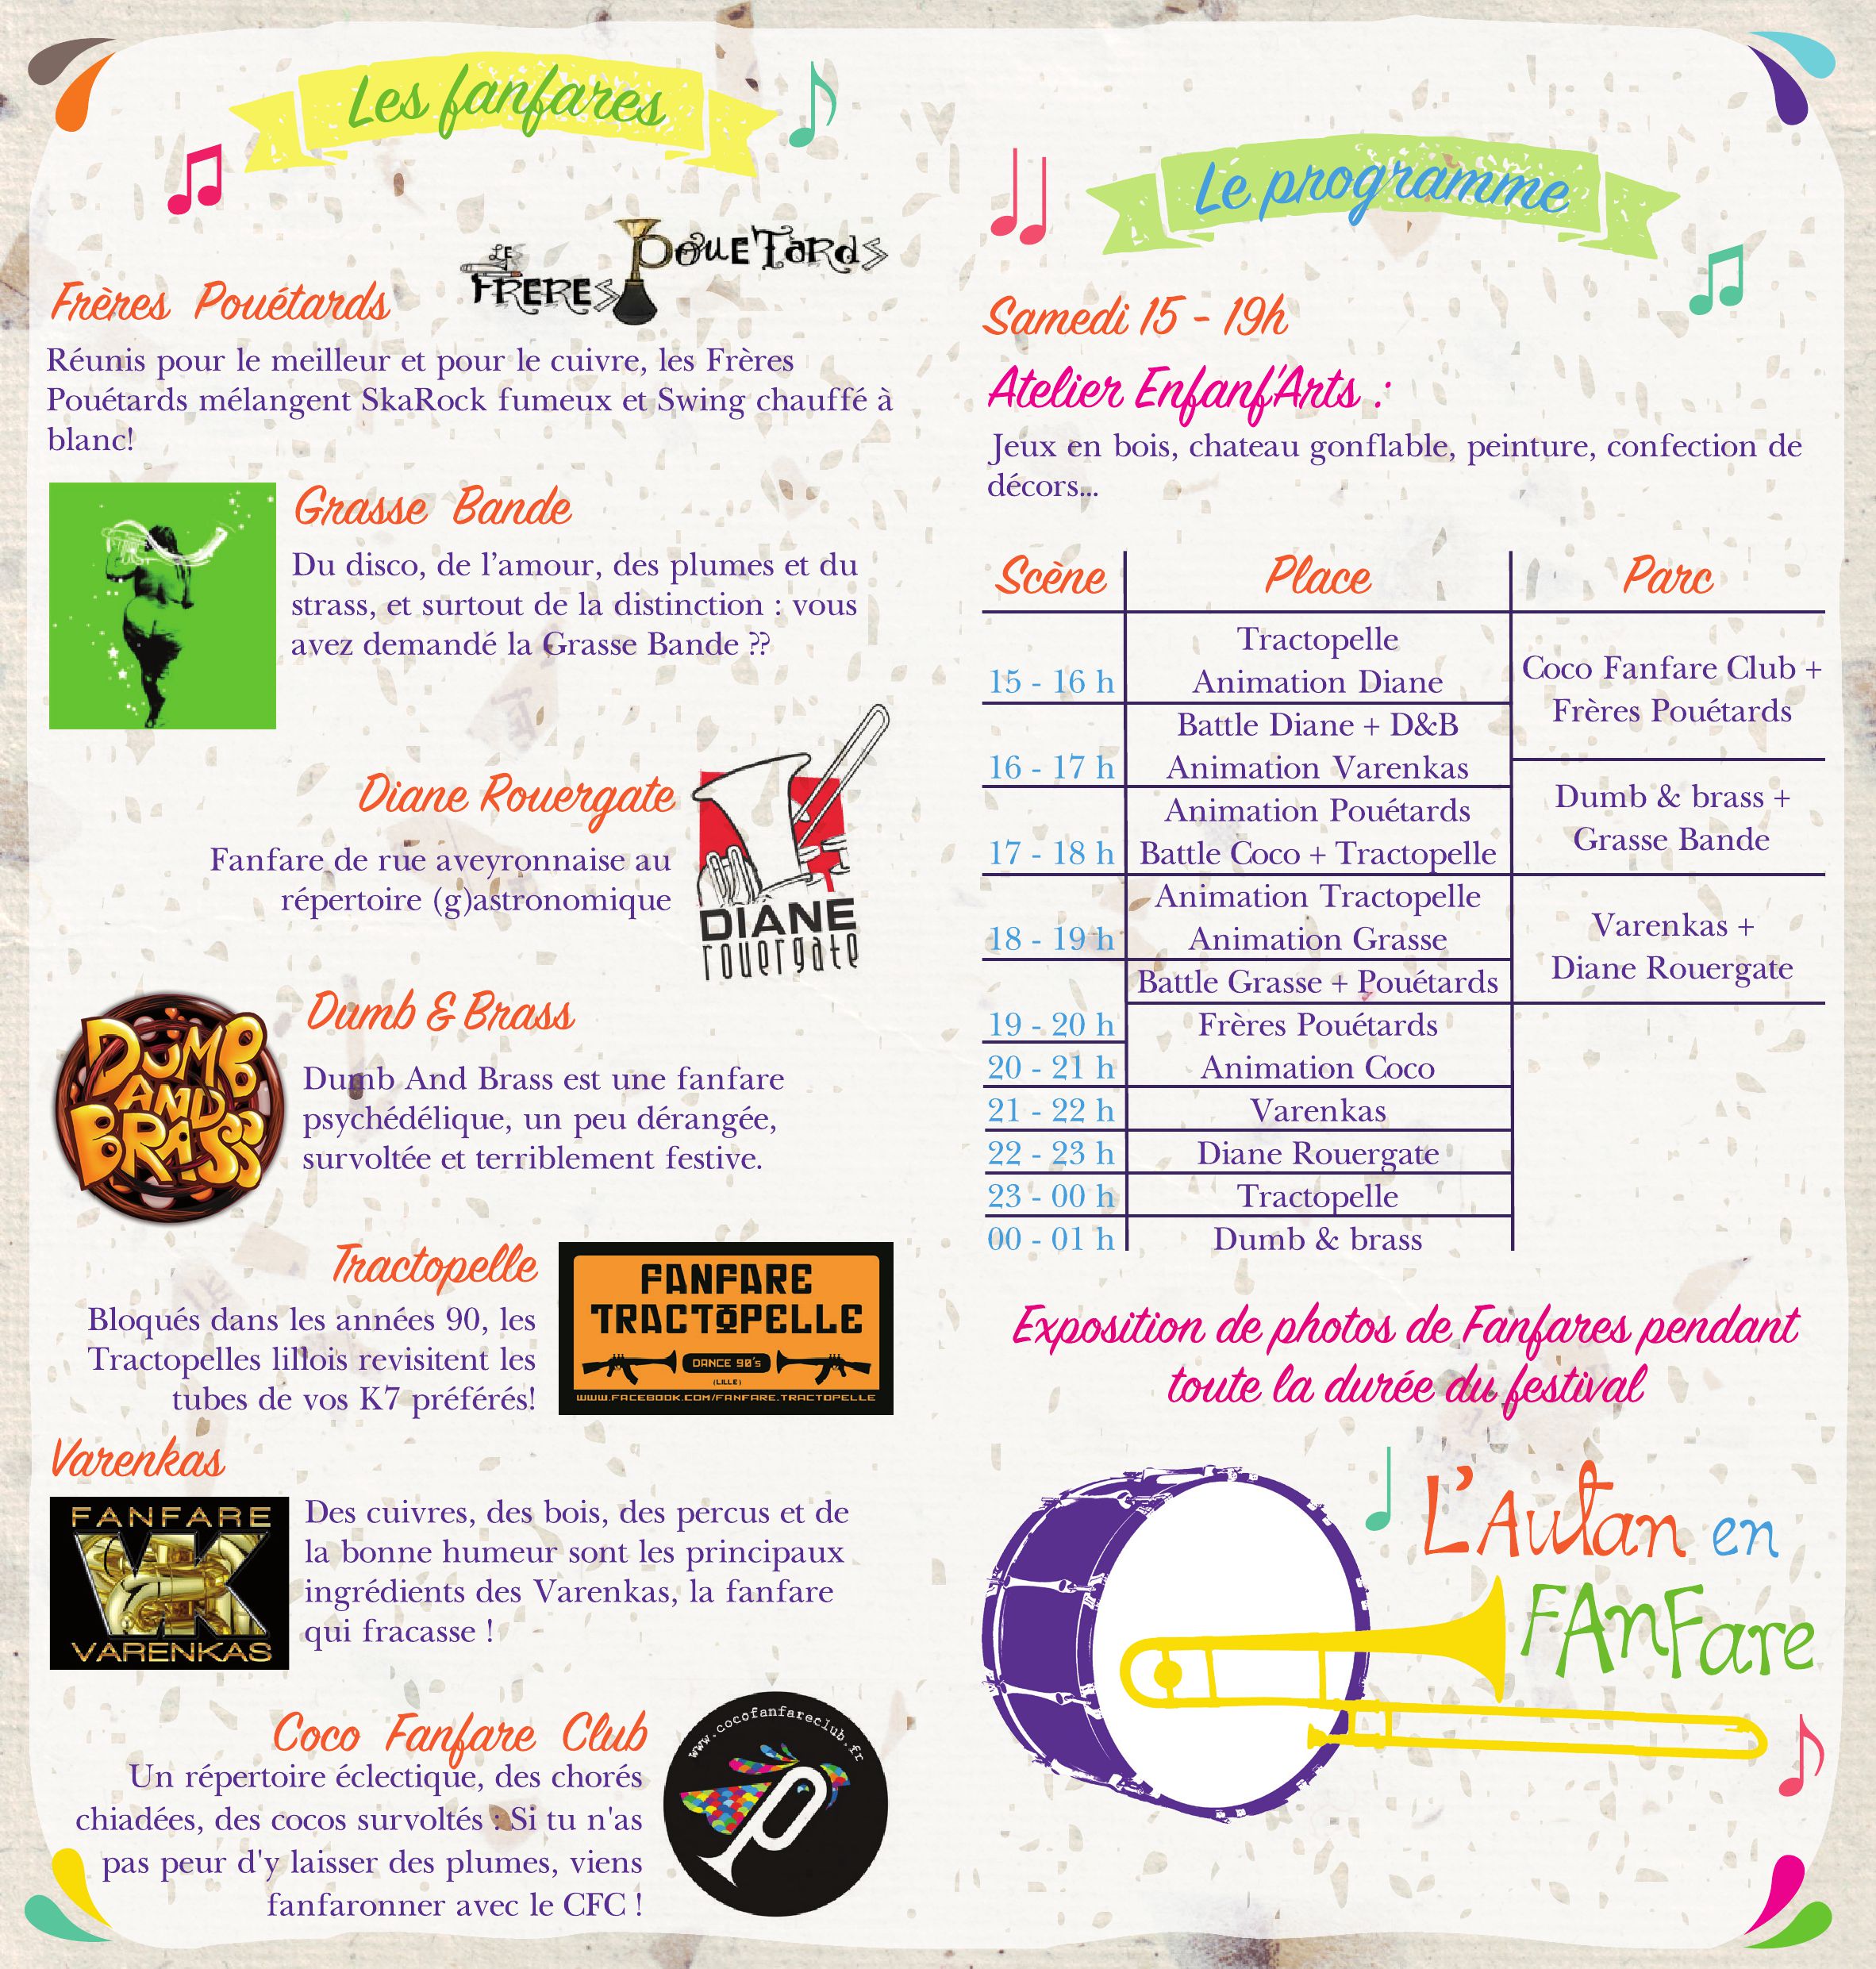 Les fanfares
LES
FRERES
POUETARDS
Frères Pouétards
Réunis pour le meilleur et pour le cuivre, les Frères
Pouétards mélangent SkaRock fumeux et Swing chauffé à
blanc!
Grasse Bande
Du disco, de l’amour, des plumes et du
strass, et surtout de la distinction : vous
avez demandé la Grasse Bande ??
Diane Rouergate
Fanfare de rue aveyronnaise au
répertoire (g)astronomique
DIANE
rouergate
Dumb & Brass
DUMB
AND
BRASS
Dumb And Brass est une fanfare
psychédélique, un peu dérangée,
survoltée et terriblement festive.
Tractopelle
Bloqués dans les années 90, les
Tractopelles lillois revisitent les
tubes de vos K7 préférés!
FANFARE
TRACTOPELLE
DANCE 90's
(LILLE)
WWW.FACEBOOK.COM/FANFARE.TRACTOPELLE
Varenkas
FANFARE
VK
VARENKAS
Des cuivres, des bois, des percus et de
la bonne humeur sont les principaux
ingrédients des Varenkas, la fanfare
qui fracasse !
Coco Fanfare Club
Un répertoire éclectique, des chorés
chiadées, des cocos survoltés : Si tu n'as
pas peur d'y laisser des plumes, viens
fanfaronner avec le CFC !
www.cocofanfareclub.fr
Le programme
Samedi 15 - 19h
Atelier Enfanf'Arts :
Jeux en bois, chateau gonflable, peinture, confection de
décors...
Scène Place Parc
Tractopelle
15 - 16 h Animation Diane
Coco Fanfare Club +
Frères Pouétards
Battle Diane + D&B
16 - 17 h Animation Varenkas
Dumb & brass +
Grasse Bande
Animation Pouétards
17 - 18 h Battle Coco + Tractopelle
Animation Tractopelle
18 - 19 h Animation Grasse
Varenkas +
Diane Rouergate
Battle Grasse + Pouétards
19 - 20 h Frères Pouétards
20 - 21 h Animation Coco
21 - 22 h Varenkas
22 - 23 h Diane Rouergate
23 - 00 h Tractopelle
00 - 01 h Dumb & brass
Exposition de photos de Fanfares pendant
toute la durée du festival
L'Autan en
FAnFare